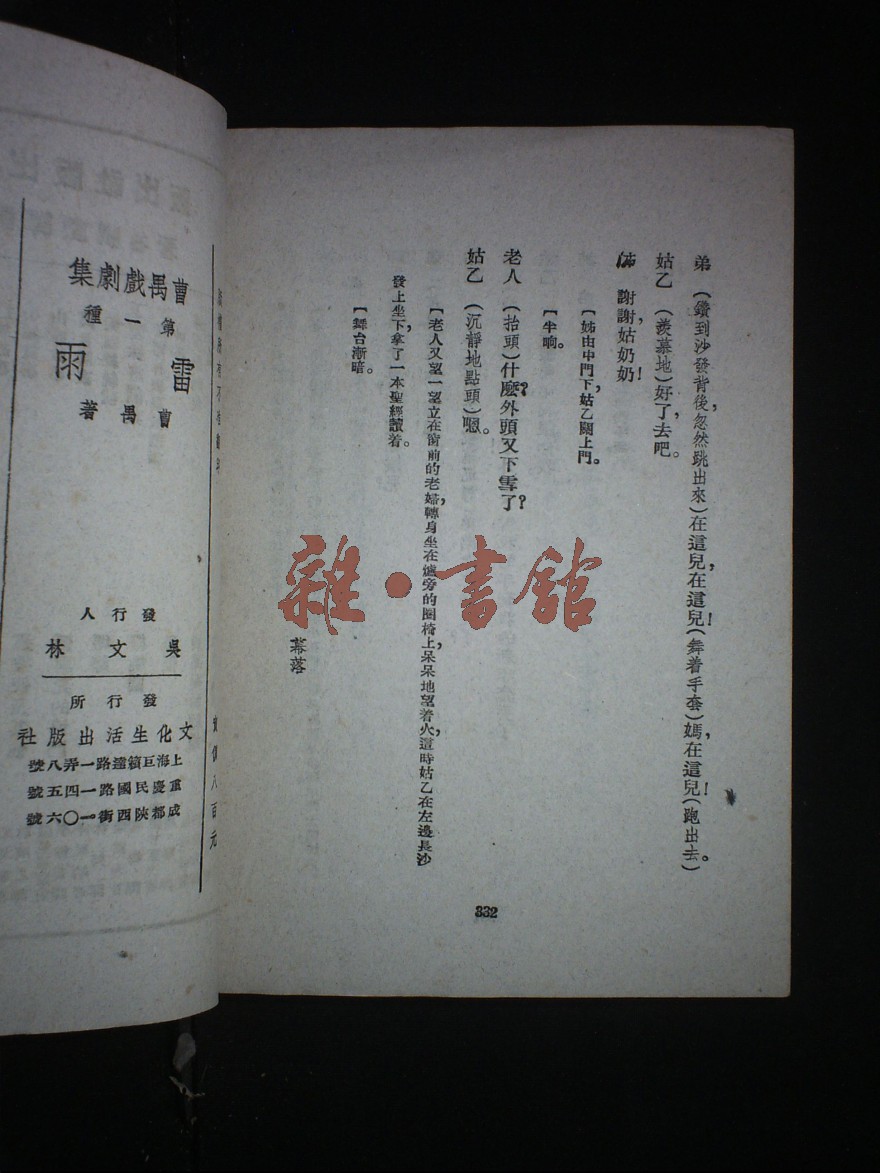 弟　（鑽到沙發背後，忽然跳出來）在這兒，在這兒！（舞着手套）媽，在這兒！（跑出去。）
姑乙　（羨慕地）好了，去吧。
姊　謝謝，姑奶奶！
【姊由中門下，姑乙關上門。
【半响。
老人　（抬頭）什麼？外頭又下雪了？
姑乙　（沉靜地點頭）嗯。
【老人又望一望立在窗前的老婦，轉身坐在爐旁的圈椅上，呆呆地望着火，這時姑乙在左邊長沙
發上坐下，拿了一本聖經讀着。
【舞台漸暗。
幕落
332
雜·書館
曹禺戲劇集
第一種
雷雨
曹禺著
發行人
吳文林
發行所
文化生活出版社
上海巨籟達路一弄八號
重慶民國路一四五號
成都陝西街一〇六號
八百元